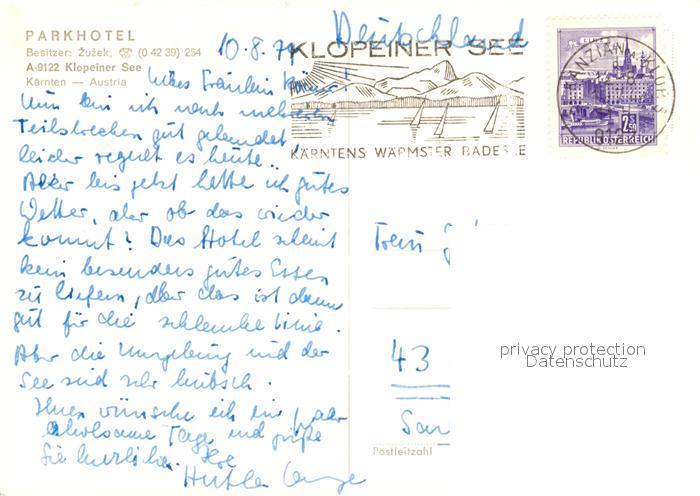 PARKHOTEL
Besitzer: Žužek, ☎ (0 42 39) 254
A-9122 Klopeiner See
Kärnten — Austria
Deutschland
10.8.74
KLOPEINER SEE
KÄRNTENS WÄRMSTER BADESEE
2.50
REPUBLIK ÖSTERREICH
Liebes Fräulein
Nun bin ich nach mehreren
Teilstrecken gut gelandet,
leider regnet es heute.
Aber bis jetzt hatte ich gutes
Wetter, aber ob das wieder
kommt? Das Hotel scheint
kein besonders gutes Essen
zu liefern, aber das ist dann
gut für die schlanke Linie.
Aber die Umgebung und der
See sind sehr hübsch.
Ihnen wünsche ich ein paar
erholsame Tage und grüße
Sie herzlich. Ihre
43
Postleitzahl
privacy protection
Datenschutz